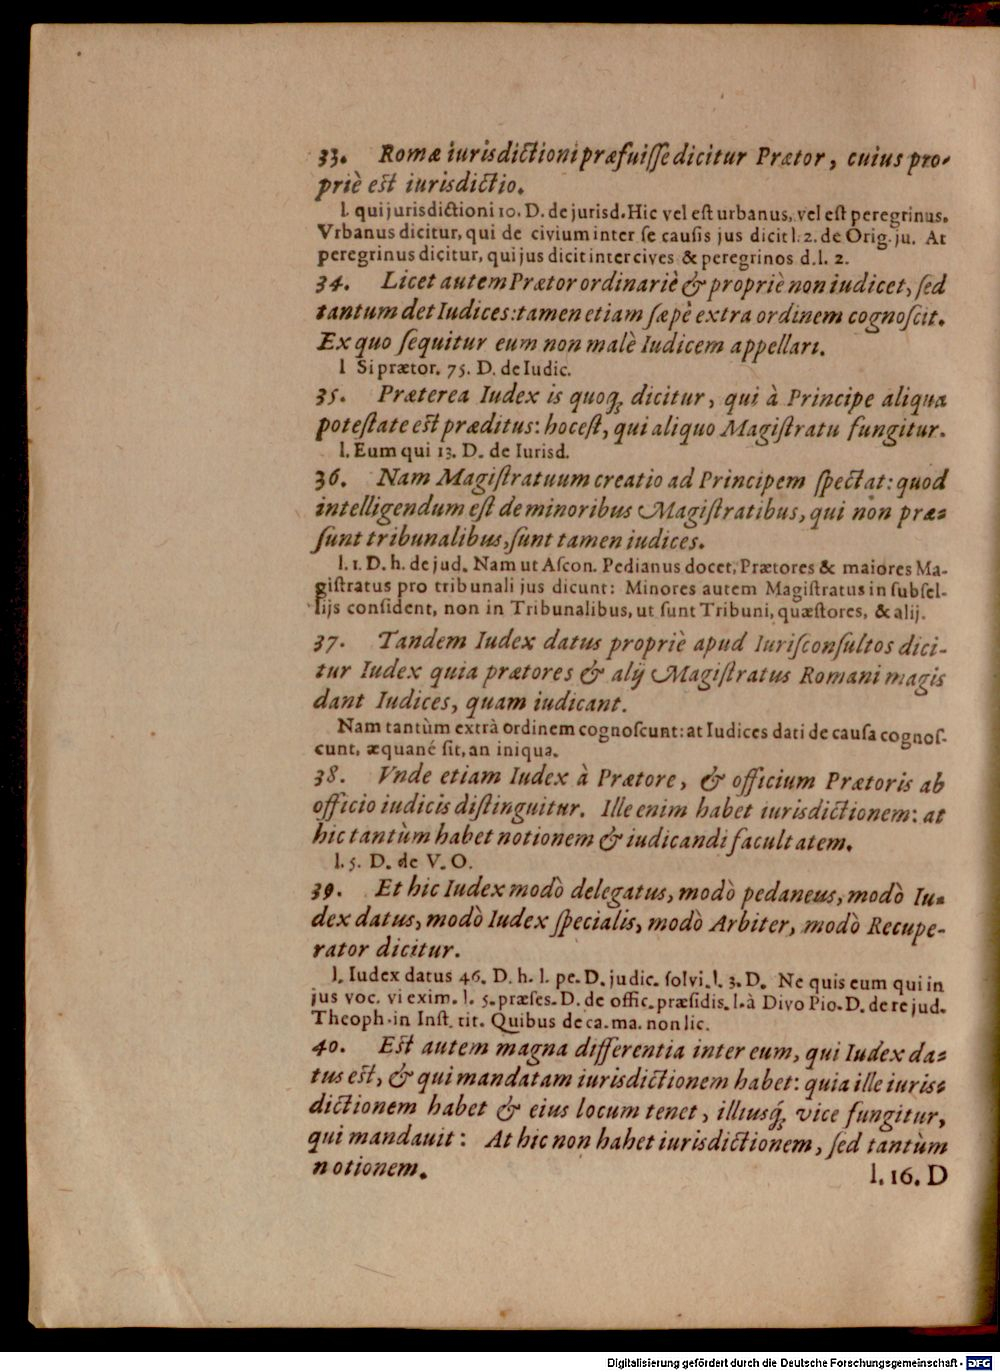 33. Romæ iurisdictioni præfuiſſe dicitur Prætor, cuius pro-
priè eſt iurisdictio.
l. qui jurisdictioni 10. D. de jurisd. Hic vel eſt urbanus, vel eſt peregrinus.
Vrbanus dicitur, qui de civium inter ſe cauſis jus dicit l. 2. de Orig. ju. At
peregrinus dicitur, qui jus dicit inter cives & peregrinos d. l. 2.
34. Licet autem Prætor ordinariè & propriè non iudicet, ſed
tantum det Iudices: tamen etiam ſæpè extra ordinem cognoſcit.
Ex quo ſequitur eum non malè Iudicem appellari.
l Si prætor. 75. D. de Iudic.
35. Præterea Iudex is quoq; dicitur, qui à Principe aliqua
poteſtate eſt præditus: hoc eſt, qui aliquo Magiſtratu fungitur.
l. Eum qui 13. D. de Iurisd.
36. Nam Magiſtratuum creatio ad Principem ſpectat: quod
intelligendum eſt de minoribus Magiſtratibus, qui non præ-
ſunt tribunalibus, ſunt tamen iudices.
l. 1. D. h. de jud. Nam ut Aſcon. Pedianus docet, Prætores & maiores Ma-
giſtratus pro tribunali jus dicunt: Minores autem Magiſtratus in ſubſel-
lijs conſident, non in Tribunalibus, ut ſunt Tribuni, quæſtores, & alij.
37. Tandem Iudex datus propriè apud Iuriſconſultos dici-
tur Iudex quia prætores & alij Magiſtratus Romani magis
dant Iudices, quam iudicant.
Nam tantùm extrà ordinem cognoſcunt: at Iudices dati de cauſa cognoſ-
cunt, æquané ſit, an iniqua.
38. Vnde etiam Iudex à Prætore, & officium Prætoris ab
officio iudicis diſtinguitur. Ille enim habet iurisdictionem: at
hic tantùm habet notionem & iudicandi facultatem.
l. 5. D. de V. O.
39. Et hic Iudex modò delegatus, modò pedaneus, modò Iu-
dex datus, modò Iudex ſpecialis, modò Arbiter, modò Recupe-
rator dicitur.
l. Iudex datus 46. D. h. l. pe. D. judic. ſolvi. l. 3. D. Ne quis eum qui in
jus voc. vi exim. l. 5. præſes. D. de offic. præſidis. l. à Divo Pio. D. de re jud.
Theoph. in Inſt. tit. Quibus de ca. ma. non lic.
40. Eſt autem magna differentia inter eum, qui Iudex da-
tus eſt, & qui mandatam iurisdictionem habet: quia ille iuris-
dictionem habet & eius locum tenet, illiusq́; vice fungitur,
qui mandauit: At hic non habet iurisdictionem, ſed tantùm
notionem.
l. 16. D
Digitalisierung gefördert durch die Deutsche Forschungsgemeinschaft - DFG